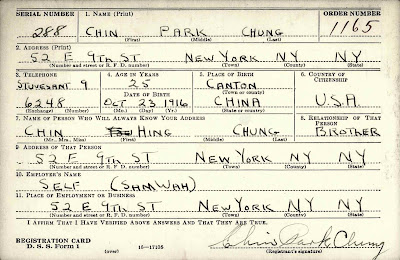 SERIAL NUMBER 1. NAME (Print) ORDER NUMBER
288 CHIN PARK CHUNG 1165
(First) (Middle) (Last)
2. ADDRESS (Print)
52 E 9TH ST NEW YORK NY NY
(Number and street or R. F. D. number) (Town) (County) (State)
3. TELEPHONE 4. AGE IN YEARS 5. PLACE OF BIRTH 6. COUNTRY OF CITIZENSHIP
STUYVESANT 9 25 CANTON
DATE OF BIRTH (Town or county)
6248 OCT 23 1916 CHINA U.S.A.
(Exchange) (Number) (Mo.) (Day) (Yr.) (State or country)
7. NAME OF PERSON WHO WILL ALWAYS KNOW YOUR ADDRESS 8. RELATIONSHIP OF THAT PERSON
CHIN HING CHUNG BROTHER
(Mr., Mrs., Miss) (First) (Middle) (Last)
9. ADDRESS OF THAT PERSON
52 E 9TH ST NEW YORK NY NY
(Number and street or R. F. D. number) (Town) (County) (State)
10. EMPLOYER'S NAME
SELF (SAM WAH)
11. PLACE OF EMPLOYMENT OR BUSINESS
52 E 9TH ST NEW YORK NY NY
(Number and street or R. F. D. number) (Town) (County) (State)
I AFFIRM THAT I HAVE VERIFIED ABOVE ANSWERS AND THAT THEY ARE TRUE.
REGISTRATION CARD
D. S. S. Form 1 (over) 16—17105 Chin Park Chung
(Registrant's signature)